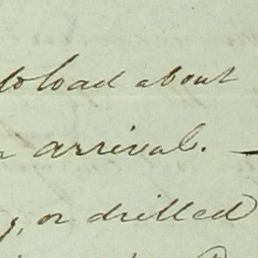 to load about
arrival. —
, or drilled